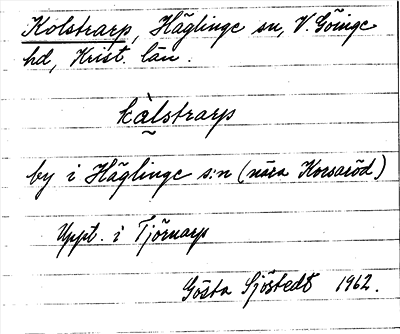 Kolstrarp, Häglinge sn, V. Göinge
hd, Krist. län.
kàlstrarp
by i Häglinge s:n (nära Korsaröd)
Uppt. i Tjörnarp
Gösta Sjöstedt 1962.